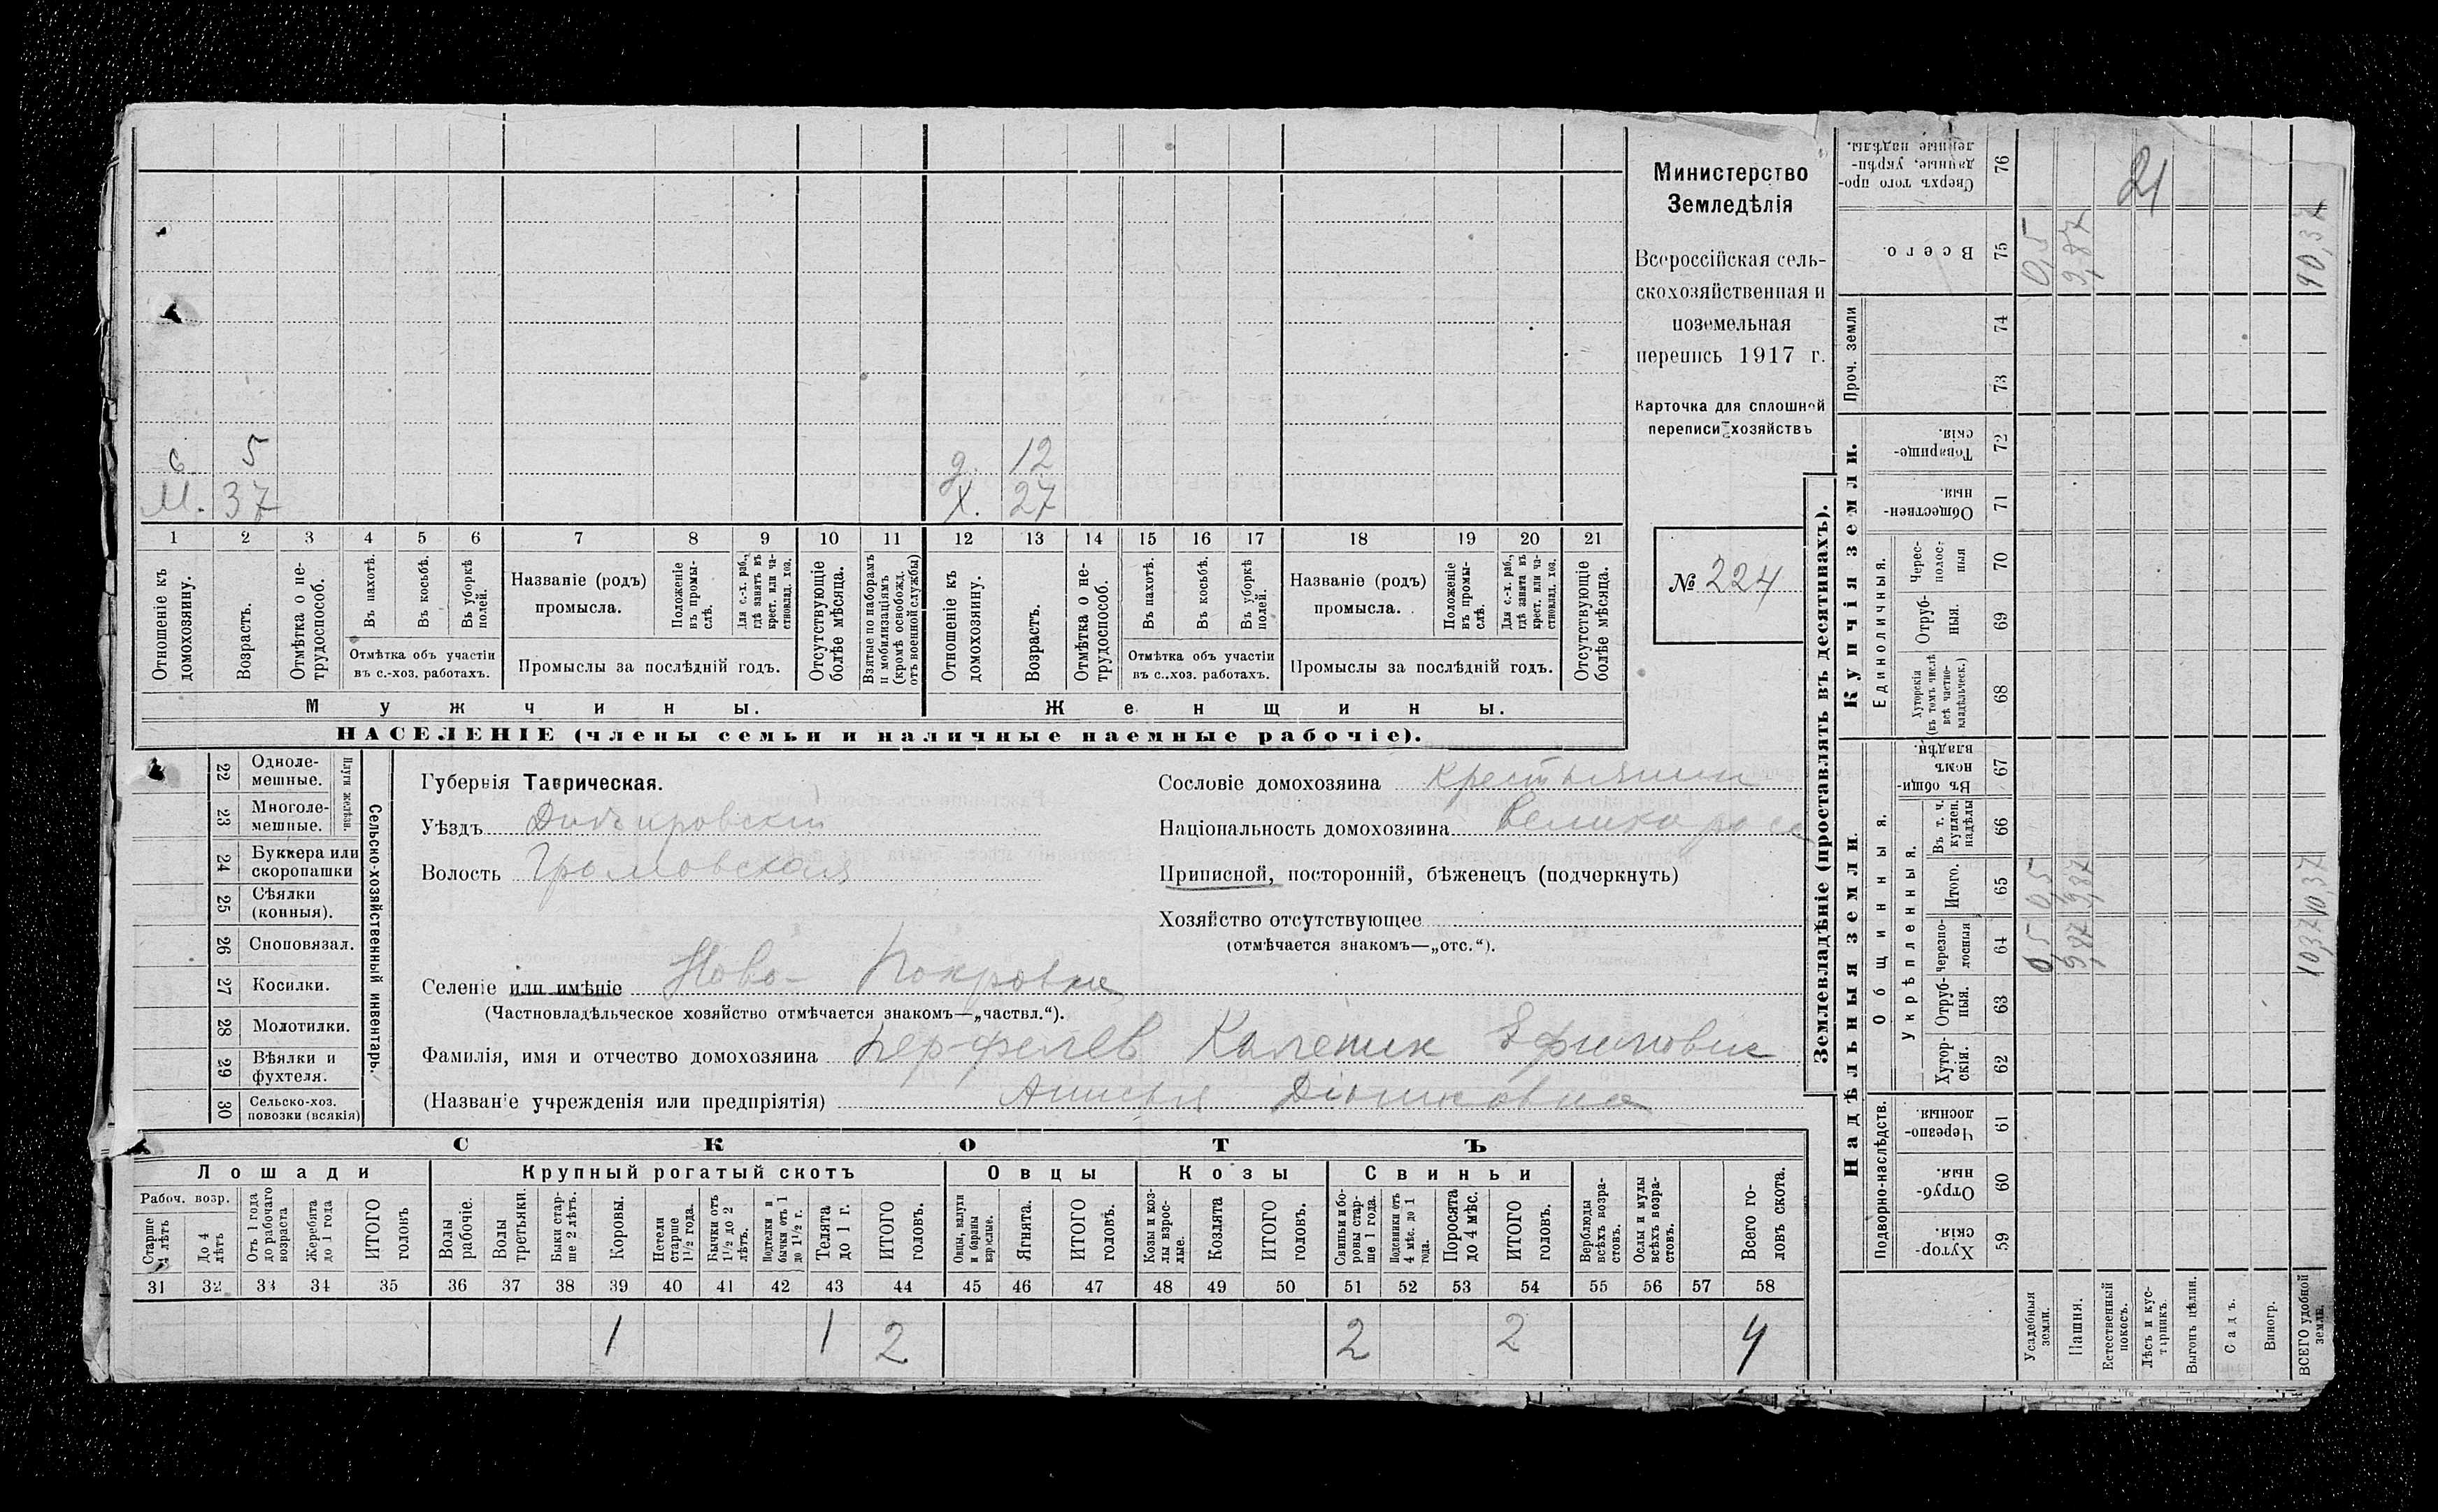 Министерство
Земледѣлія
Всероссійская сель-
скохозяйственная и
поземельная
перепись 1917 г.
Карточка для сплошной
переписи хозяйствъ
№ 224
с 5
М. 37
д. 12
Х. 27
1 2 3 4 5 6 7 8 9 10 11 12 13 14 15 16 17 18 19 20 21
Отношеніе къ домохозяину.
Возрастъ.
Отмѣтка о не-трудоспособ.
Въ пахотѣ.
Въ косьбѣ.
Въ уборкѣ полей.
Отмѣтка объ участіи
въ с.-хоз. работахъ.
Названіе (родъ)
промысла.
Положеніе въ промы-слѣ.
Для с.-х. раб., гдѣ занятъ въ крест. или ча-стновлад. хоз.
Промыслы за послѣдній годъ.
Отсутствующіе болѣе мѣсяца.
Взятые по наборамъ и мобилизаціямъ (кромѣ освобожд. отъ военной службы)
Отношеніе къ домохозяину.
Возрастъ.
Отмѣтка о не-трудоспособ.
Въ пахотѣ.
Въ косьбѣ.
Въ уборкѣ полей.
Отмѣтка объ участіи
въ с.-хоз. работахъ.
Названіе (родъ)
промысла.
Положеніе въ промы-слѣ.
Для с.-х. раб., гдѣ занята въ крест. или ча-стновлад. хоз.
Промыслы за послѣдній годъ.
Отсутствующіе болѣе мѣсяца.
Мужчины. Женщины.
НАСЕЛЕНІЕ (члены семьи и наличные наемные рабочіе).
Сельско-хозяйственный инвентарь.
Плуги желѣзн.
22 Одноле-мешные.
23 Многоле-мешные.
24 Буккера или скоропашки
25 Сѣялки (конныя).
26 Сноповязал.
27 Косилки.
28 Молотилки.
29 Вѣялки и фухтеля.
30 Сельско-хоз. повозки (всякія)
Губернія Таврическая.
Уѣздъ Днѣпровскій
Волость Громовская
Селеніе или имѣніе Ново-Покровка
(Частновладѣльческое хозяйство отмѣчается знакомъ—„частвл.“).
Фамилія, имя и отчество домохозяина Перфелев Каленик Ефимович
(Названіе учрежденія или предпріятія) Анисья
Сословіе домохозяина крестьянин
Національность домохозяина Великоросс
Приписной, посторонній, бѣженецъ (подчеркнуть)
Хозяйство отсутствующее
(отмѣчается знакомъ—„отс.“).
СКОТЪ
Лошади Крупный рогатый скотъ Овцы Козы Свиньи
Рабоч. возр.
Старше 4 лѣтъ
До 4 лѣтъ
Отъ 1 года до рабочаго возраста
Жеребята до 1 года
ИТОГО головъ
Волы рабочіе.
Волы третьяки.
Быки стар-ше 2 лѣтъ.
Коровы.
Нетели старше 1½ года.
Бычки отъ 1½ до 2 лѣтъ.
Подтелки и бычки отъ 1 до 1½ г.
Телята до 1 г.
ИТОГО головъ.
Овцы, валухи и бараны взрослые.
Ягнята.
ИТОГО головъ.
Козы и коз-лы взрос-лые.
Козлята
ИТОГО головъ.
Свиньи и бо-ровы стар-ше 1 года.
Подсвинки отъ 4 мѣс. до 1 года.
Поросята до 4 мѣс.
ИТОГО головъ.
Верблюды всѣхъ возра-стовъ.
Ослы и мулы всѣхъ возра-стовъ.
Всего го-ловъ скота.
31 32 33 34 35 36 37 38 39 40 41 42 43 44 45 46 47 48 49 50 51 52 53 54 55 56 57 58
1 1 2 2 2 4
Землевладѣніе (проставлять въ десятинахъ).
Надѣльныя земли. Купчія земли. Проч. земли
Подворно-наслѣдств.
Общинныя.
Укрѣпленныя.
Единоличныя.
59 Хутор-скія.
60 Отруб-ныя.
61 Черезпо-лосныя.
62 Хутор-скія.
63 Отруб-ныя.
64 Черезпо-лосныя
65 Итого.
66 Въ т. ч. куплен. надѣлы
67 Въ общин-номъ владѣн.
68 Хуторскія (въ томъ числѣ всѣ частно-владѣльческ.)
69 Отруб-ныя.
70 Черес-полос-ныя
71 Обществен-ныя.
72 Товарище-скія.
73
74
75 Всего.
76 Сверхъ того про-данные, укрѣп-ленные надѣлы.
Усадебныя земли. 0,5 0,5 0,5
Пашня. 9,87 9,87 9,87
Естественный покосъ.
Лѣсъ и кус-тарникъ.
Выгонъ цѣлин.
Садъ.
Виногр.
ВСЕГО удобной земли. 10,37 10,37 10,37
21